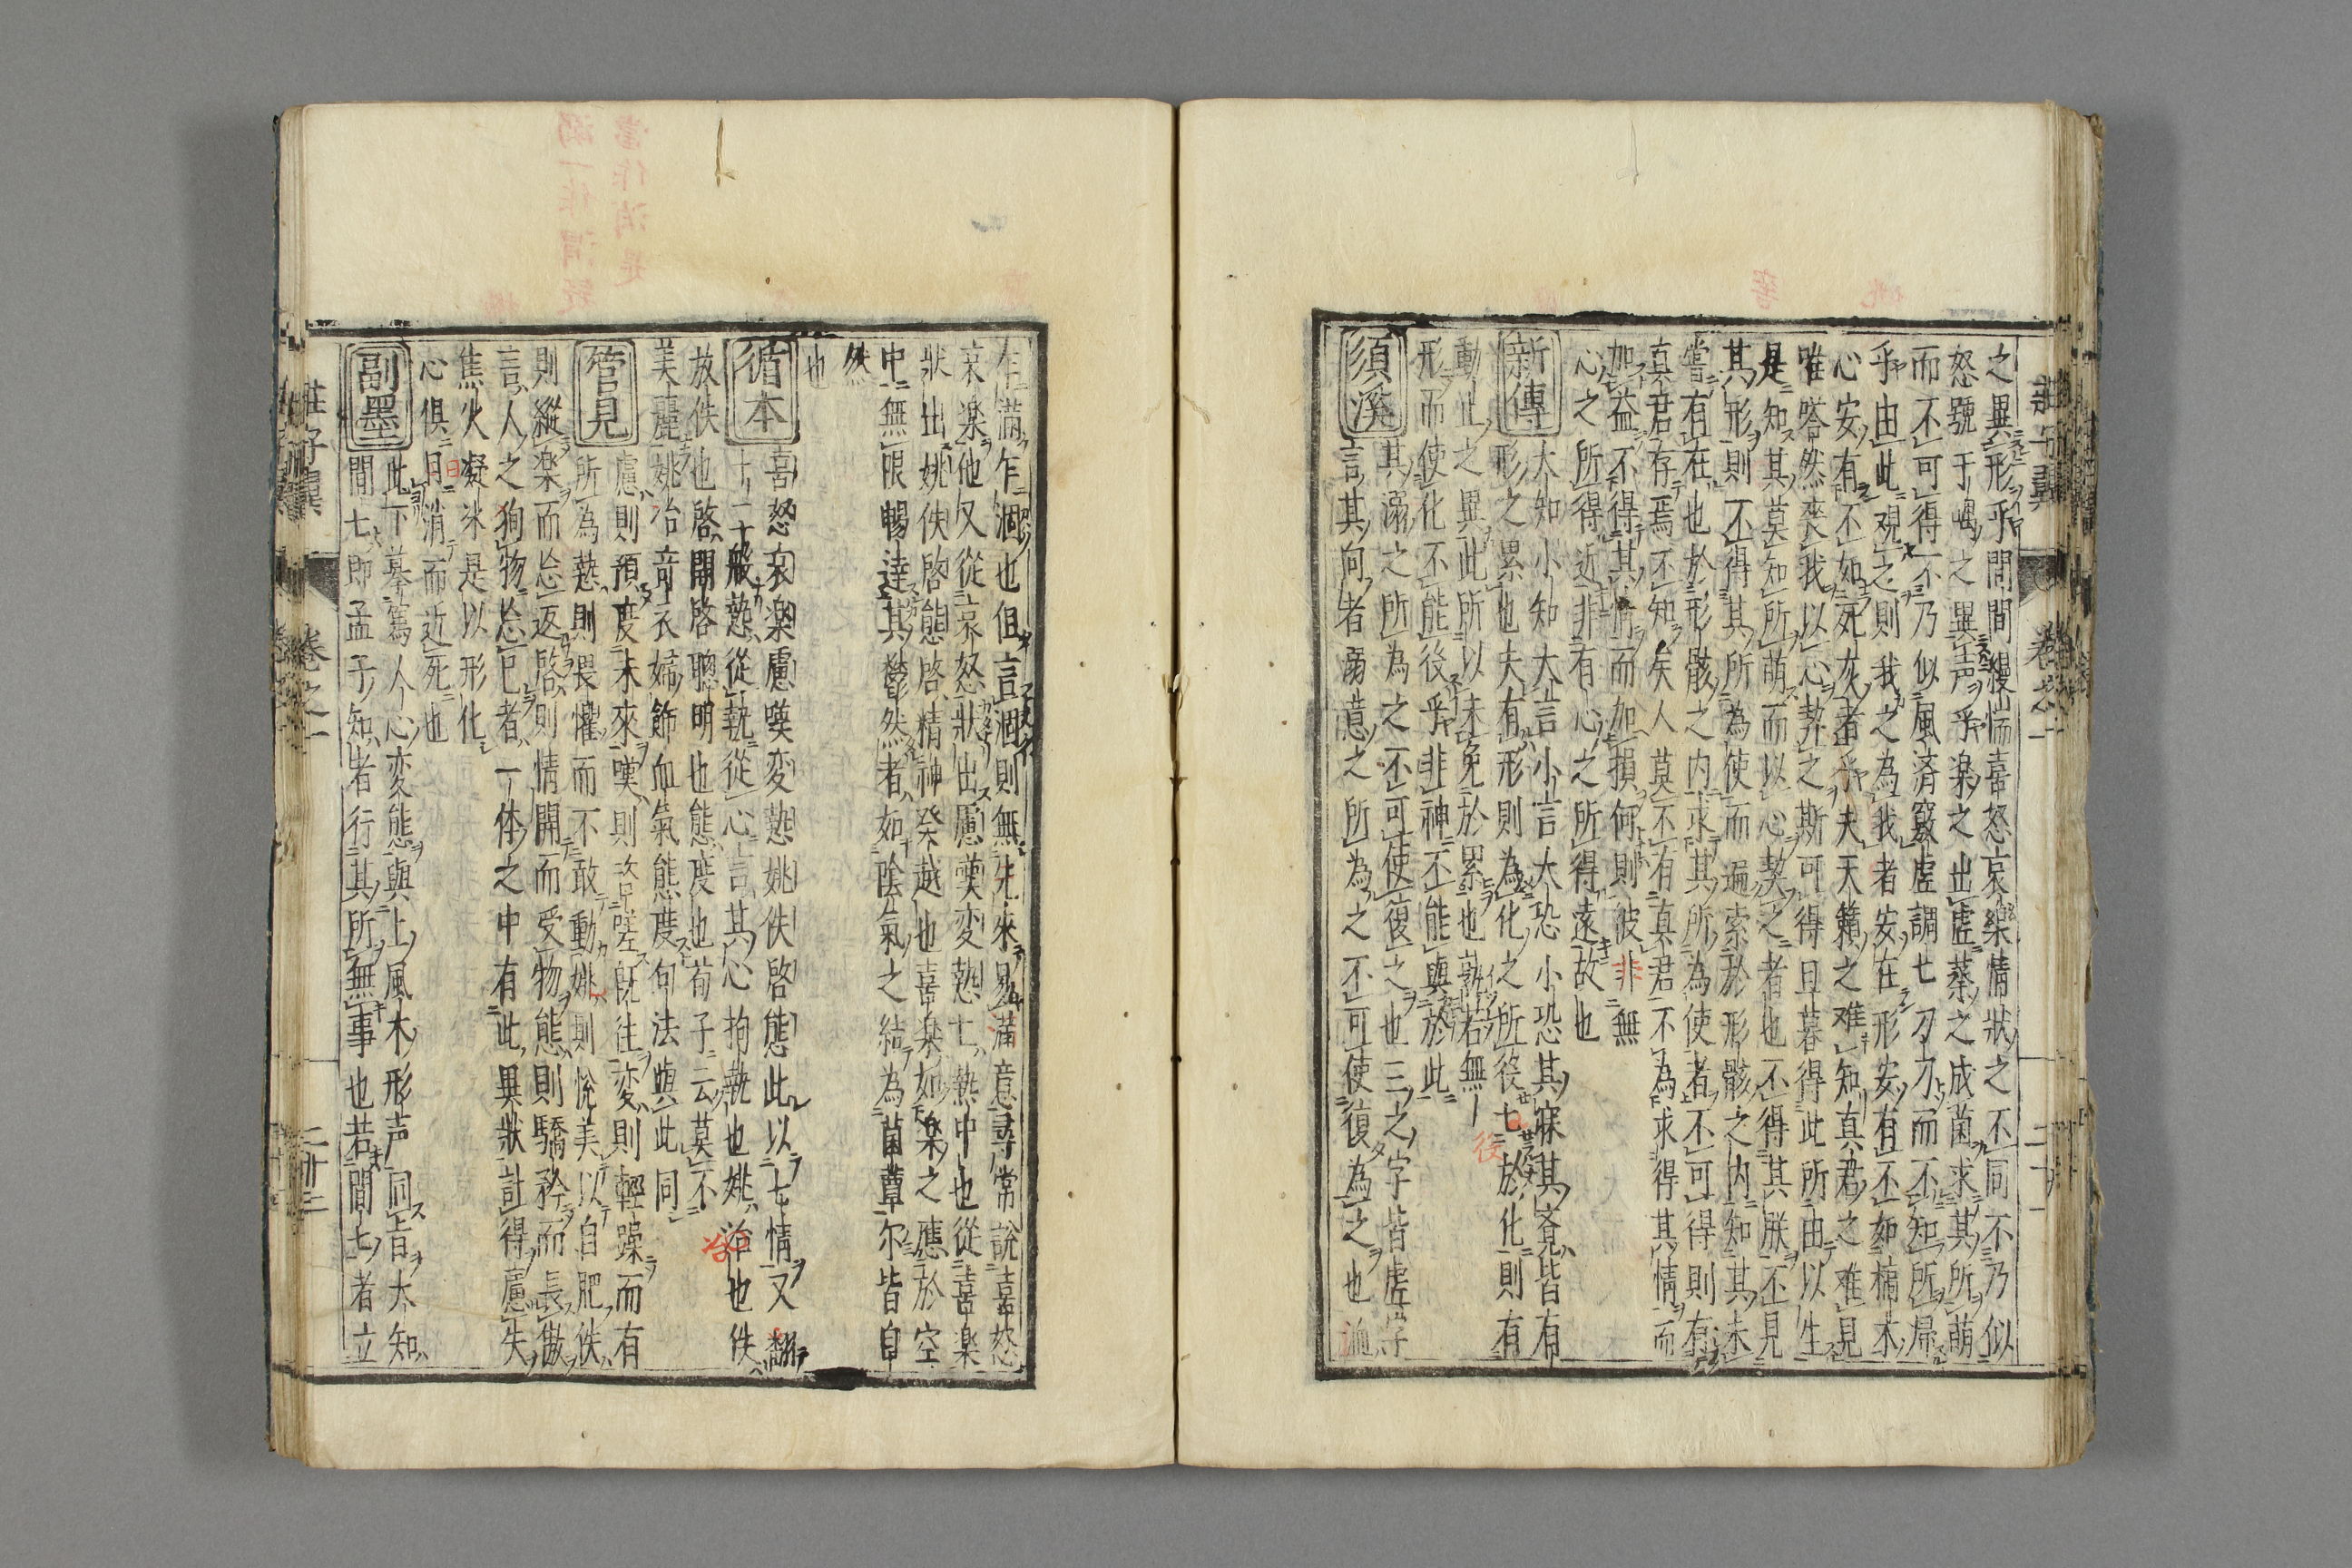 之異形乎間間縵惴喜怒哀樂情狀之不同不乃似
怒號于喁之異声乎楽之出虚蒸之成菌求其所萌
而不可得不乃似風済竅虚調七刀刀而不知所帰
乎由此覌之則我之為我者安在形安有不如槁木
心安有不如死灰者乎夫天籟之难知真君之难見
唯嗒然喪我以心契之斯可得旦暮得此所由以生
是知其莫知所萌而以心契之者也不得其朕不見
其形則不得其所為使而遍索於形骸之内知其未
嘗有在也於形骸之内求其所為使者不可得則有
真君存焉不知矣人莫不有真君不為求得其情而
加益不得其情而加損何則彼非無
心之所得近非有心之所得遠故也
新傳
大知小知大言小言大恐小恐其寐其覚皆有
形之累也夫有形則為化之所役七於化則有
動止之異此所以未免於累也孰若無
形而使化不能役乎非神不能與於此
須溪
其溺之所為之不可使復之也三之字皆虚字
言其向者溺意之所為之不可使復為之也
荘子翼 卷之一 二十二
生滿乍涸也但言涸則無先來易滿意尋常說喜怒
哀楽他又從哀怒狀出慮嘆変慹七熱中也從喜楽
狀出姚佚啓態啓精神発越也喜楽如楽之應於空
中無限暢達其鬱然者如陰氣之結為菌蕈尓皆自
然
也
循本
喜怒哀楽慮嘆変慹姚佚啓態此以七情又翻
十二般慹從執從心言其心拘執也姚冶也佚
放佚也啓開啓聰明也態度也荀子云莫不
美麗姚冶竒衣婦飾血氣態度句法與此同
管見
慮則預度未來嘆則咨嗟既往変則輕躁而有
所為慹則畏懼而不敢動姚則悅美以自肥佚
則縱楽而忘返啓則情開而受物態則驕矜而長傲
言人之狥物忘已者一体之中有此異狀計得慮失
焦火凝氷是以形化
心俱日消而近死也
副墨
此下摹寫人心変態與上風木形声同旨大知
間七即孟子知者行其所無事也若間七者立
荘子翼 卷之一 二十三